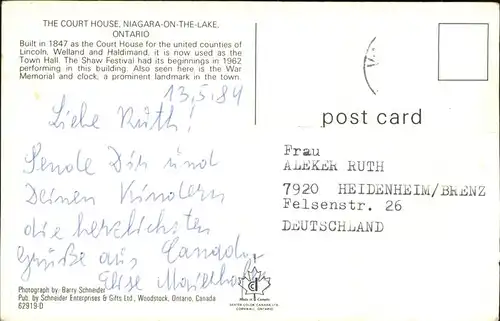 THE COURT HOUSE, NIAGARA-ON-THE-LAKE,
ONTARIO
Built in 1847 as the Court House for the united counties of
Lincoln, Welland and Haldimand, it is now used as the
Town Hall. The Shaw Festival had its beginnings in 1962
performing in this building. Also seen here is the War
Memorial and clock, a prominent landmark in the town.
13.5.84
Liebe Ruth!
Sende Dir und
Deinen Kindern
die herzlichsten
Grüße aus Canada.
Elise
Photograph by: Barry Schneider
Pub. by Schneider Enterprises & Gifts Ltd., Woodstock, Ontario, Canada
62919-D
post card
Frau
ALEKER RUTH
7920 HEIDENHEIM/BRENZ
Felsenstr. 26
DEUTSCHLAND
Made in Canada